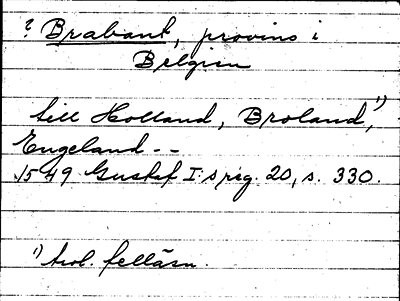 ? Brabant, provins i
Belgien
till Holland, Broland,¹⁾
Engeland --
1549 Gustaf I:s reg. 20, s. 330.
¹⁾ trol. felläsn.